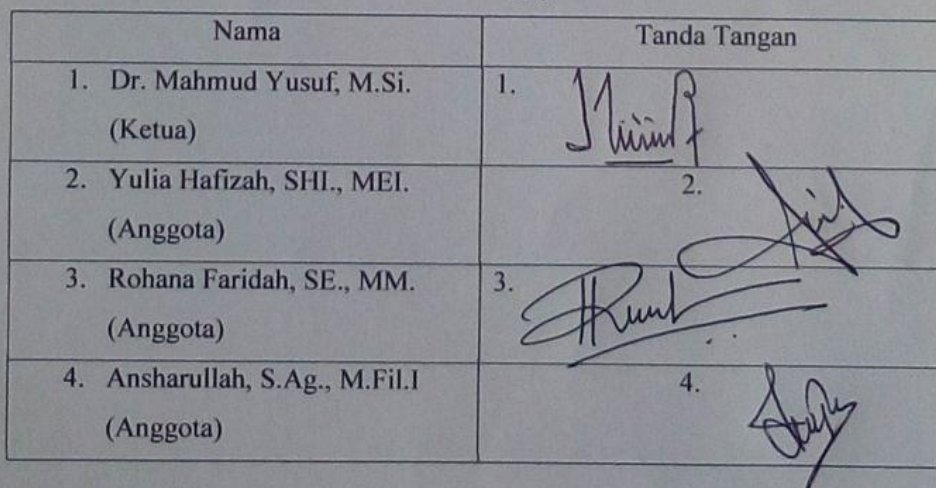 Nama Tanda Tangan
1. Dr. Mahmud Yusuf, M.Si. 1.
(Ketua)
2. Yulia Hafizah, SHI., MEI. 2.
(Anggota)
3. Rohana Faridah, SE., MM. 3.
(Anggota)
4. Ansharullah, S.Ag., M.Fil.I 4.
(Anggota)